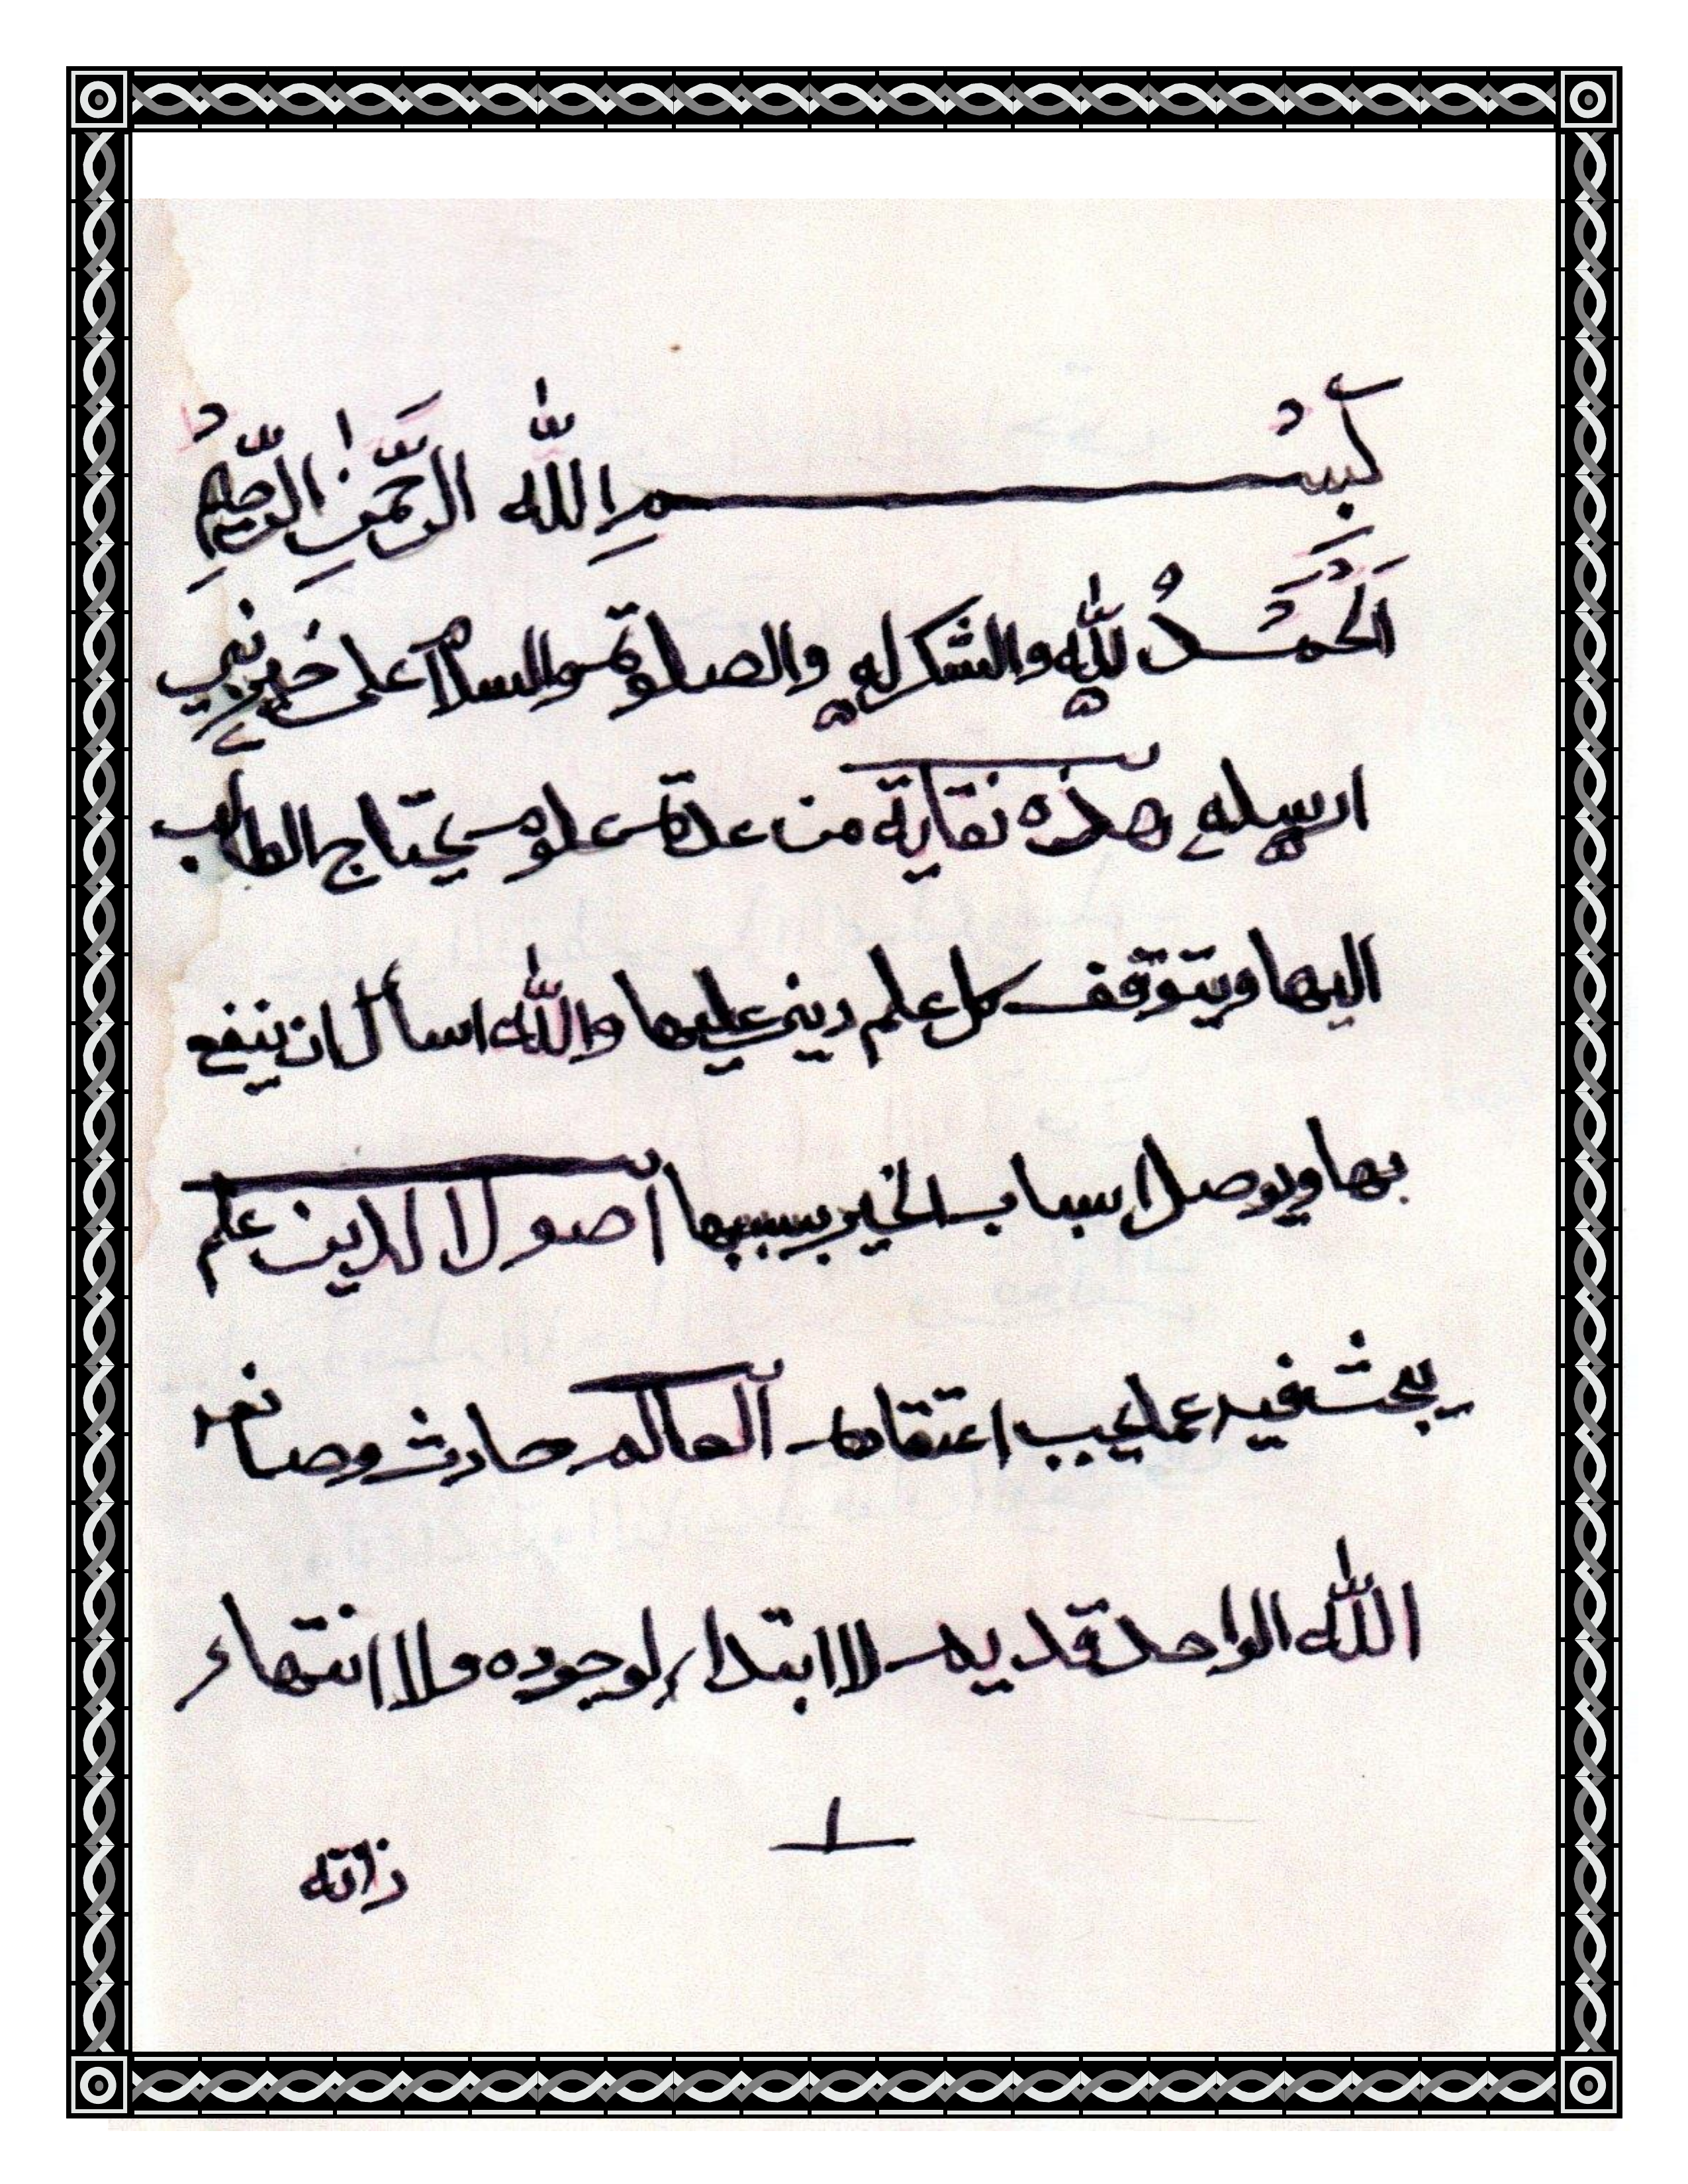 بِسْمِ اللّٰه الرَّحْمٰنِ الرَّحِيْمِ
اَلْحَمْدُ لِلّٰهِ والشكر له والصلوة والسلام على خير نبي
ارسله هذه نقاية من عدة علوم يحتاج الطالب
اليها ويتوقف كل علم ديني عليها والله اسأل ان ينفع
بها ويوصل اسباب الخير بسببها اصول الدين علم
يبحث فيه عما يجب اعتقاده العالم حادث وصانعه
الله الواحد قديم لا ابتداء لوجوده ولا انتهاء
١
ذاته